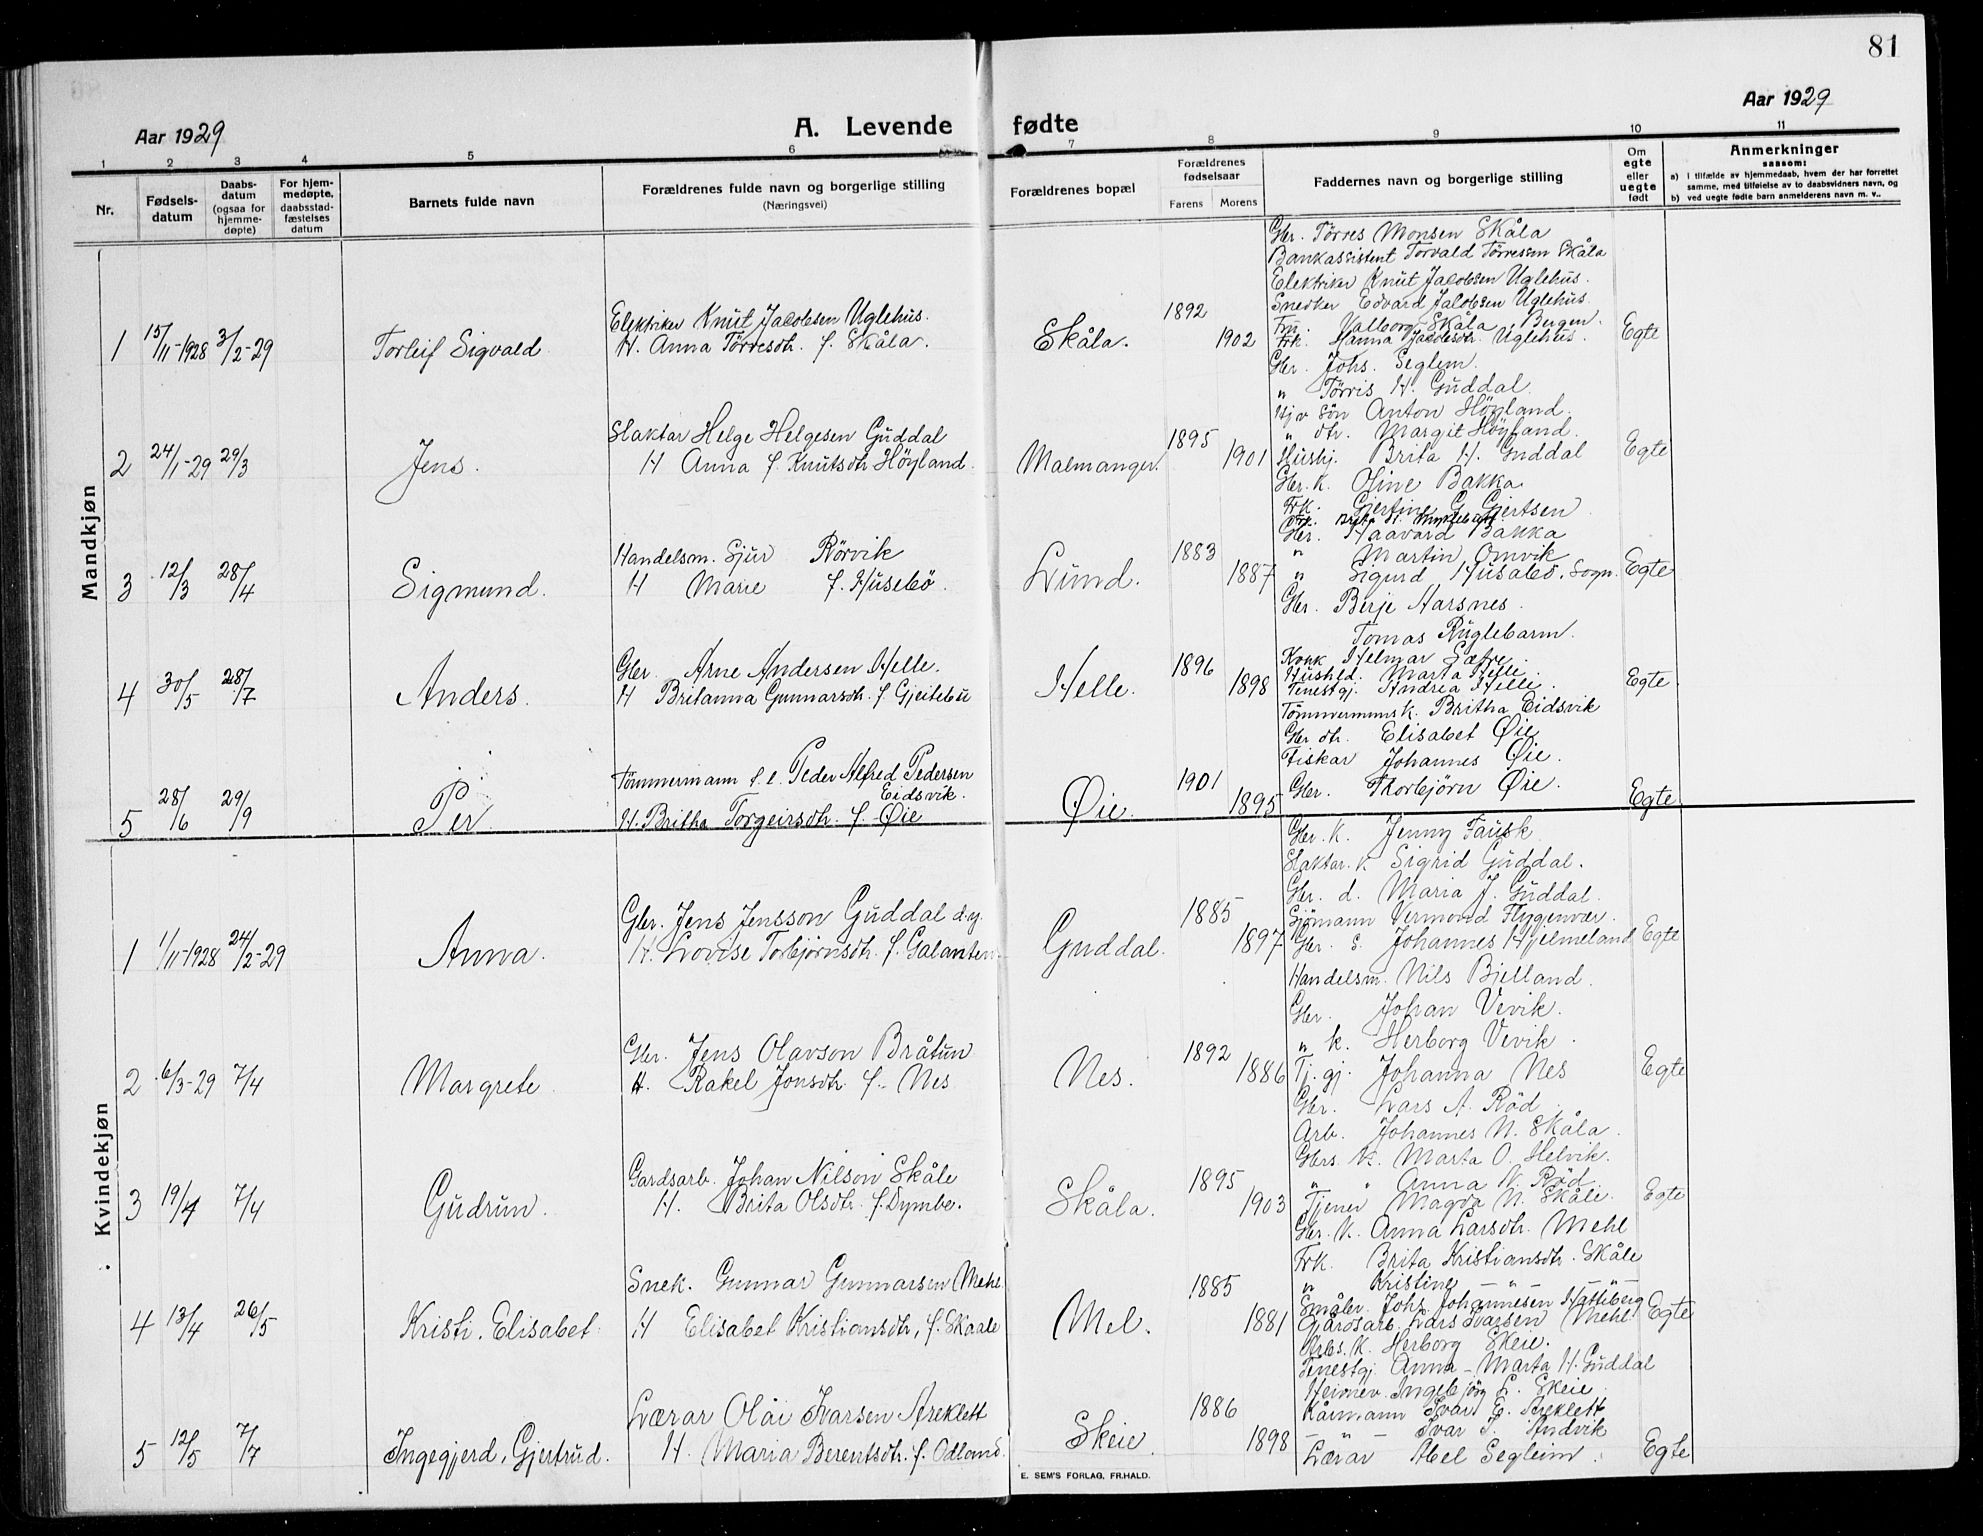 81
Aar 1929
A. Levende fødte
Aar 1929
1 2 3 4 5 6 7 8 9 10 11
Nr.
Fødsels-
datum
Daabs-
datum
(ogsaa for
hjemme-
døpte)
For hjem-
medøpte,
daabsstad-
fæstelses
datum
Barnets fulde navn
Forældrenes fulde navn og borgerlige stilling
(Næringsvei)
Forældrenes bopæl
Forældrenes
fødselsaar
Farens Morens
Faddernes navn og borgerlige stilling
Om
egte
eller
uegte
født
Anmerkninger
saasom:
a) i tilfælde av hjemmedaab, hvem der har forrettet
samme, med tilføielse av to daabsvidners navn, og
b) ved uegte fødte barn anmelderens navn m. v..
Mandkjøn
1 15/11-1928 3/2-29 Torleif Sigvald
Elektriker Knut Jacobsen Uglehus.
H. Anna Tørresdtr. f. Skåla.
Skåla. 1892 1902
Gbr. Tørres Monsen Skåla
Bankassistent Torvald Tørresen Skåla
Elektriker Knut Jacobsen Uglehus.
Snedker Edvard Jacobsen Uglehus.
Fru. Valborg Skåla Bergen.
Frk. Hanna Jacobsdr. Uglehus.
Egte
2 24/1-29 29/3 Jens.
Slaktar Helge Helgesen Guddal
H Anna f. Knutsdtr Höyland.
Malmanger. 1895 1901
Gbr. Johs. Seglem.
" Tørris H. Guddal.
Gbr søn Anton Höyland.
" dtr. Margit Höyland.
Husbj. Brita H. Guddal
Egte
3 12/3 28/4 Sigmund.
Handelsm. Sjur Rörvik
H Marie f. Husebö.
Lund. 1883 1887
Gbr. K. Oline Bakka
Frk. Gjertine G. Gjertsen
Gbr. Haavard Bakka
" Martin Omvik
" Sigurd Husabö, Sogn.
Egte
4 30/5 28/7 Anders.
Gbr. Arne Andersen Helle.
H Britanna Gunnarsdtr. f Gjeitebu
Helle. 1896 1898
Gbr. Berje Aarsnes.
Tomas Ruglebarm.
Kokk Helmar Sætre.
Hushld. Marta Helle
Tenestgj. Andrea Helle.
Egte
5 28/6 29/9 Per
Tömmermann f. e. Peder Alfred Pedersen
Eidsvik.
H. Britha Torgeirsdtr. f. Øie
Øie. 1901 1895
Tømmermans k. Britha Eidsvik
Gbr dtr. Elisabet Øie
Fiskar Johannes Øie.
Gbr. Thorbjörn Øie.
Egte
Kvindekjøn
1 1/11-1928 24/2-29 Anna.
Gbr. Jens Jensson Guddal d.y.
H. Lovise Torbjørnsdtr. f. Galanten.
Guddal. 1885 1897
Gbr. K. Jenny Fausk.
Slaktar. k. Sigrid Guddal.
Gbr. d. Maria J. Guddal.
Sjømann Vermond Flygenvær.
Gbr. s. Johannes Hjelmeland
Egte
2 6/3-29 7/4 Margrete
Gbr. Jens Olavson Bråtun
H. Rakel Jonsdtr f. Nes
Nes. 1892 1886
Handelsm. Nils Bjelland.
Gbr. Johan Vevik.
" k. Herborg Vevik.
Tj. gj. Johanna Nes
Gbr. Lars A. Röd.
Egte
3 19/4 7/4 Gudrun.
Gardsarb. Johan Nilson Skåle
H. Brita Olsdtr. f. Dymbe.
Skåla. 1895 1903
Arb. Johannes N. Skåla.
Gbrs. K. Marta O. Helvik.
" " Anna N. Röd.
Tjener Magda N. Skåle.
Egte
4 13/4 26/5 Kristi. Elisabet.
Snek. Gunnar Gunnarsen Mehl
H Elisabet Kristiansdtr, f. Skaale
Mel. 1885 1881
Gbr. K. Anna Larsdtr. Mehl
Frk. Brita Kristiansdtr. Skåle
" Kristine —"— —"—
Småbr. Johs. Johannesen Hatteberg
Gjårdsarb. Lars Ivarsen Mehl
Egte
5 12/5 7/7 Ingegjerd, Gjertrud.
Lærar Olai Ivarsen Areklett
H. Maria Berentsdtr. f. Odland.
Skeie. 1886 1898
Arbs. K. Herborg Skeie.
Tenestgj. Anna-Marta H. Guddal
Heimev. Ingebjörg L. Skeie.
Kårmann Ivar E. Areklett
— " — Ivar I. Andvik
Lærar Abel Segleim.
Egte
E. SEM'S FORLAG, FR.HALD.